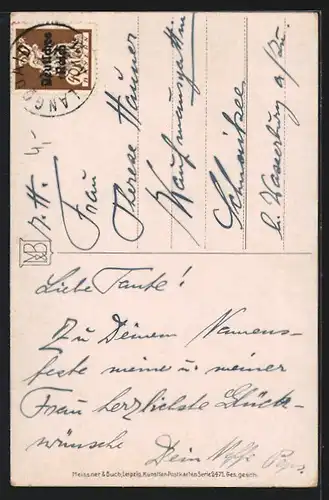 Deutsches
Reich
Frau
Therese Hauner
Kaufmannsgattin
b. Wasserburg a/Inn
Liebe Tante!
Zu Deinem Namens-
feste meine u. meiner
Frau herzlichste Glück-
wünsche
Dein Neffe
Meissner & Buch, Leipzig, Künstler-Postkarten Serie 2471. Ges. gesch.